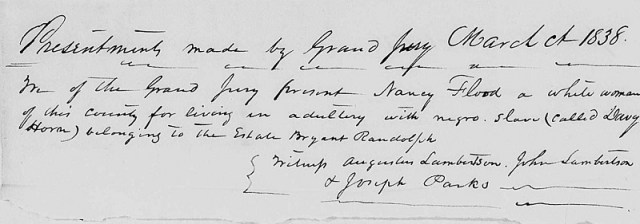 Presentments made by Grand Jury March ct 1838.
We of the Grand Jury present Nancy Flood a white woman
of this county for living in adultery with negro. slave (called Davy
Horan) belonging to the Estate Bryant Randolph
Witness Augustus Lambertson. John Lambertson
& Joseph Parks